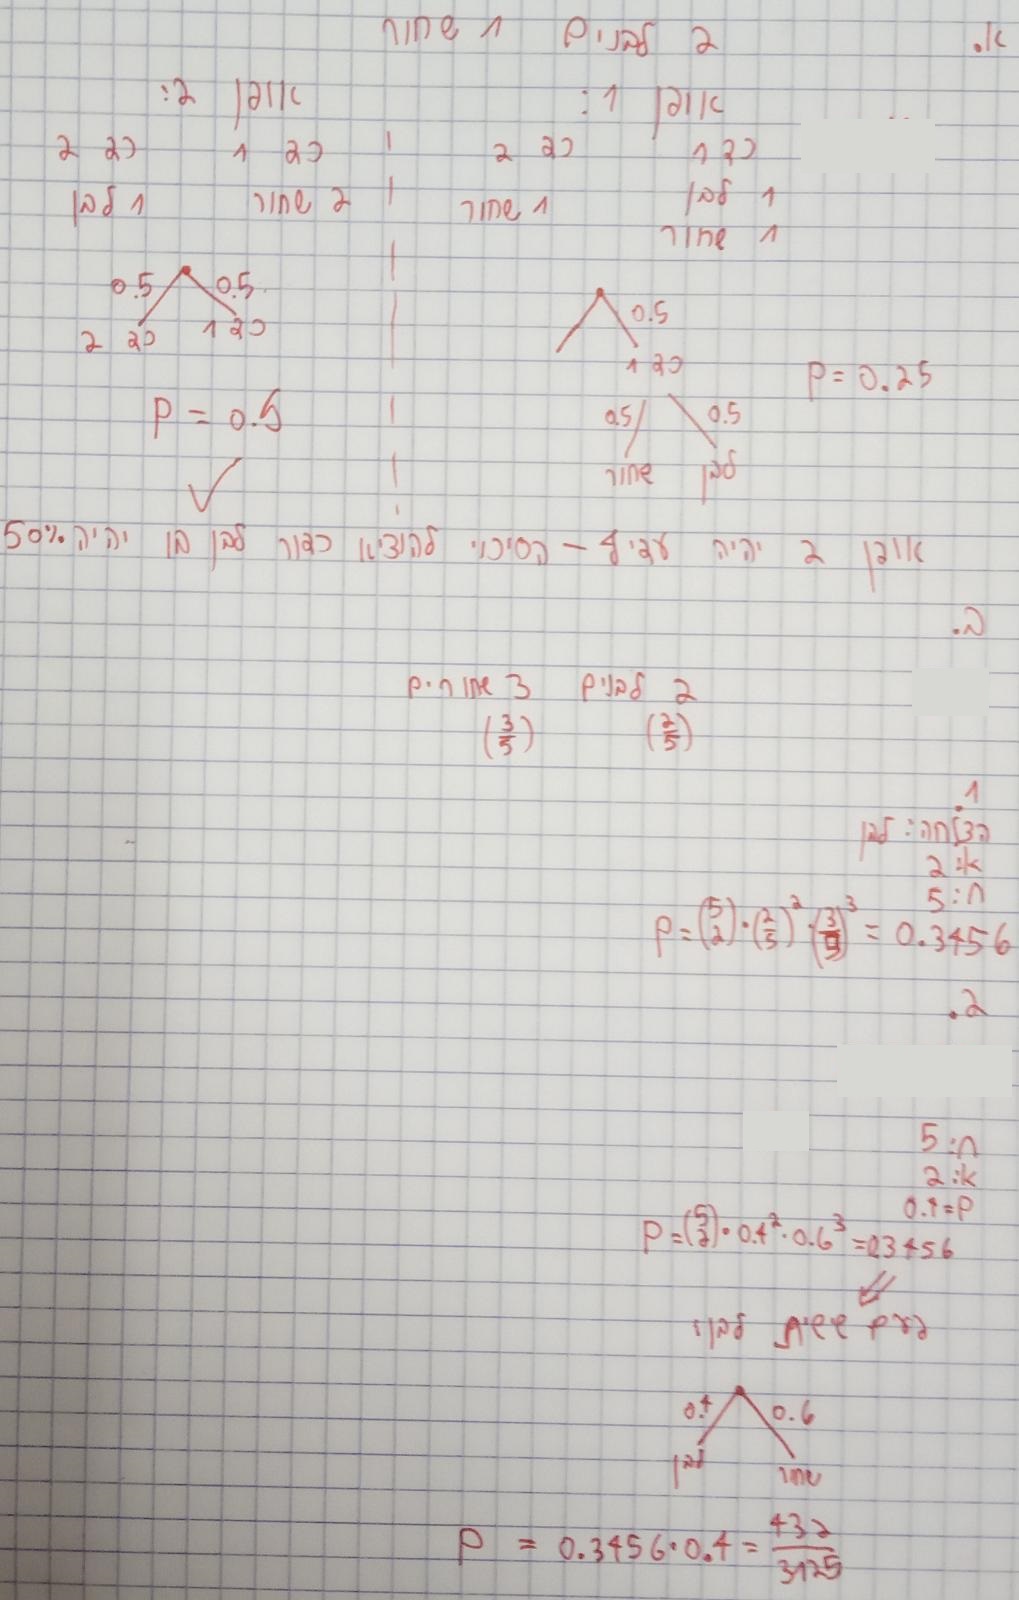 א. 2 לבנים 1 שחור
אופן 1: אופן 2:
כד 1 כד 2 כד 1 כד 2
1 לבן 1 שחור 2 שחור 1 לבן
1 שחור
0.5 0.5
0.5
כד 1 כד 2
כד 1
P = 0.25
P = 0.5
0.5 0.5
שחור לבן
אופן 2 יהיה עדיף - הסיכוי להוציא כדור לבן בו יהיה 50%
ב.
2 לבנים 3 שחורים
(2/5) (3/5)
1.
הצלחה: לבן
k: 2
n: 5
P = (5 2) · (2/5)^2 · (3/5)^3 = 0.3456
2.
n: 5
k: 2
P=0.4
P = (5 2) · 0.4^2 · 0.6^3 = 0.3456
⇙
פעם שישית לבן:
0.4 0.6
לבן שחור
P = 0.3456 · 0.4 = 432/3125